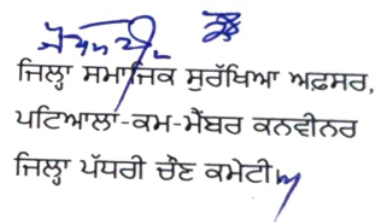 ਜਿਲ੍ਹਾ ਸਮਾਜਿਕ ਸੁਰੱਖਿਆ ਅਫ਼ਸਰ,
ਪਟਿਆਲਾ-ਕਮ-ਮੈਂਬਰ ਕਨਵੀਨਰ
ਜਿਲ੍ਹਾ ਪੱਧਰੀ ਚੌਣ ਕਮੇਟੀ